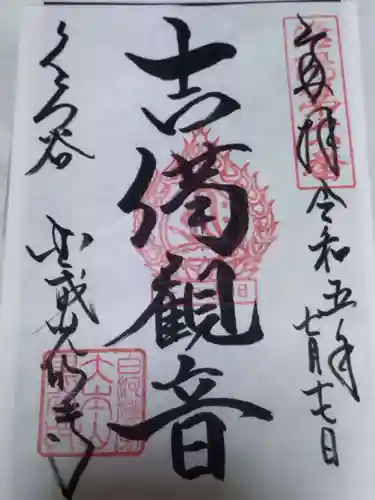 奉拝
令和五年
七月十七日
吉備観音
くろ谷
金戒光明寺
大本山